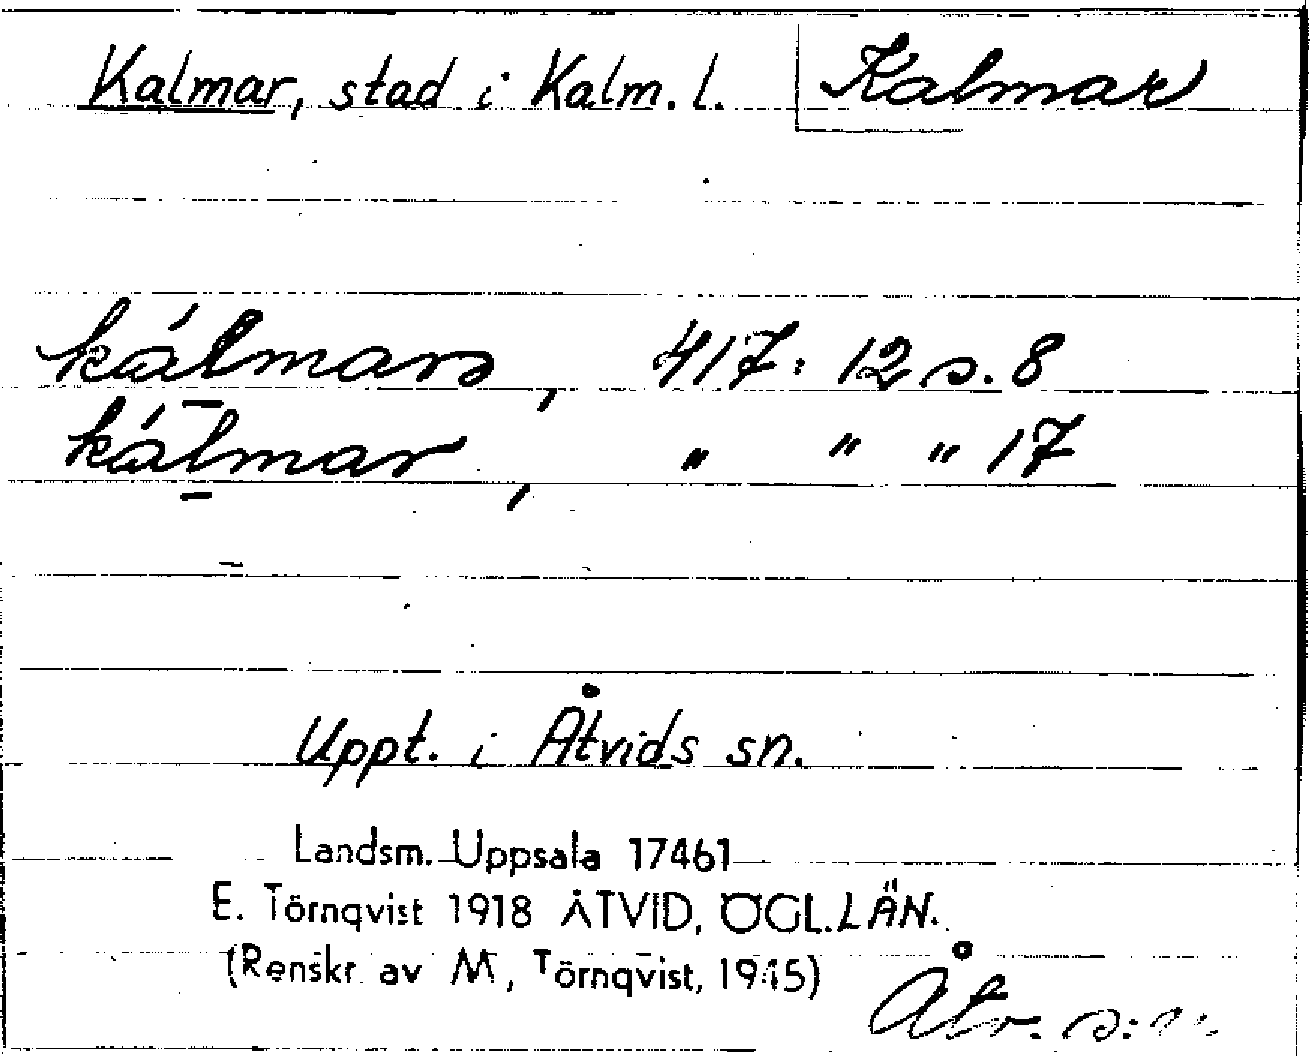 Kalmar, stad i Kalm. l. Kalmar
kálmars, 417: 12 s. 8
kálmar, " " " 17
Uppt. i Åtvids sn.
Landsm. Uppsala 17461
E. Törnqvist 1918 ÅTVID, ÖGL. LÄN.
(Renskr. av M. Törnqvist, 1945)
Åtv. s:n